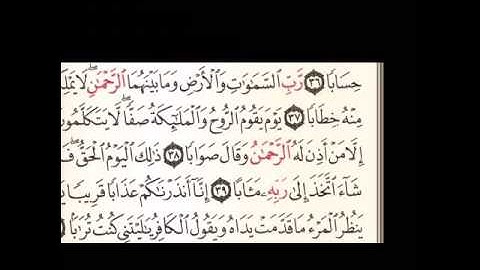 حِسَابًا ٣٦ رَّبِّ السَّمَٰوَٰتِ وَالْأَرْضِ وَمَا بَيْنَهُمَا الرَّحْمَٰنِ ۖ لَا يَمْلِ
مِنْهُ خِطَابًا ٣٧ يَوْمَ يَقُومُ الرُّوحُ وَالْمَلَٰٓئِكَةُ صَفًّا ۖ لَّا يَتَكَلَّمُونَ
إِلَّا مَنْ أَذِنَ لَهُ الرَّحْمَٰنُ وَقَالَ صَوَابًا ٣٨ ذَٰلِكَ الْيَوْمُ الْحَقُّ ۖ فَ
شَآءَ اتَّخَذَ إِلَىٰ رَبِّهِۦ مَـَٔابًا ٣٩ إِنَّآ أَنذَرْنَٰكُمْ عَذَابًا قَرِيبًا يَ
يَنظُرُ الْمَرْءُ مَا قَدَّمَتْ يَدَاهُ وَيَقُولُ الْكَافِرُ يَٰلَيْتَنِي كُنتُ تُرَٰبًۢا